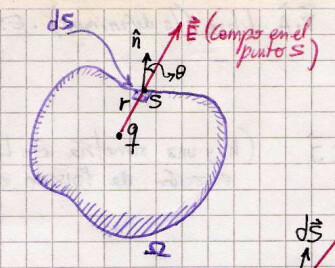 dS
n̂
E⃗ (Campo en el
punto S)
θ
r
S
q
Ω
dS⃗